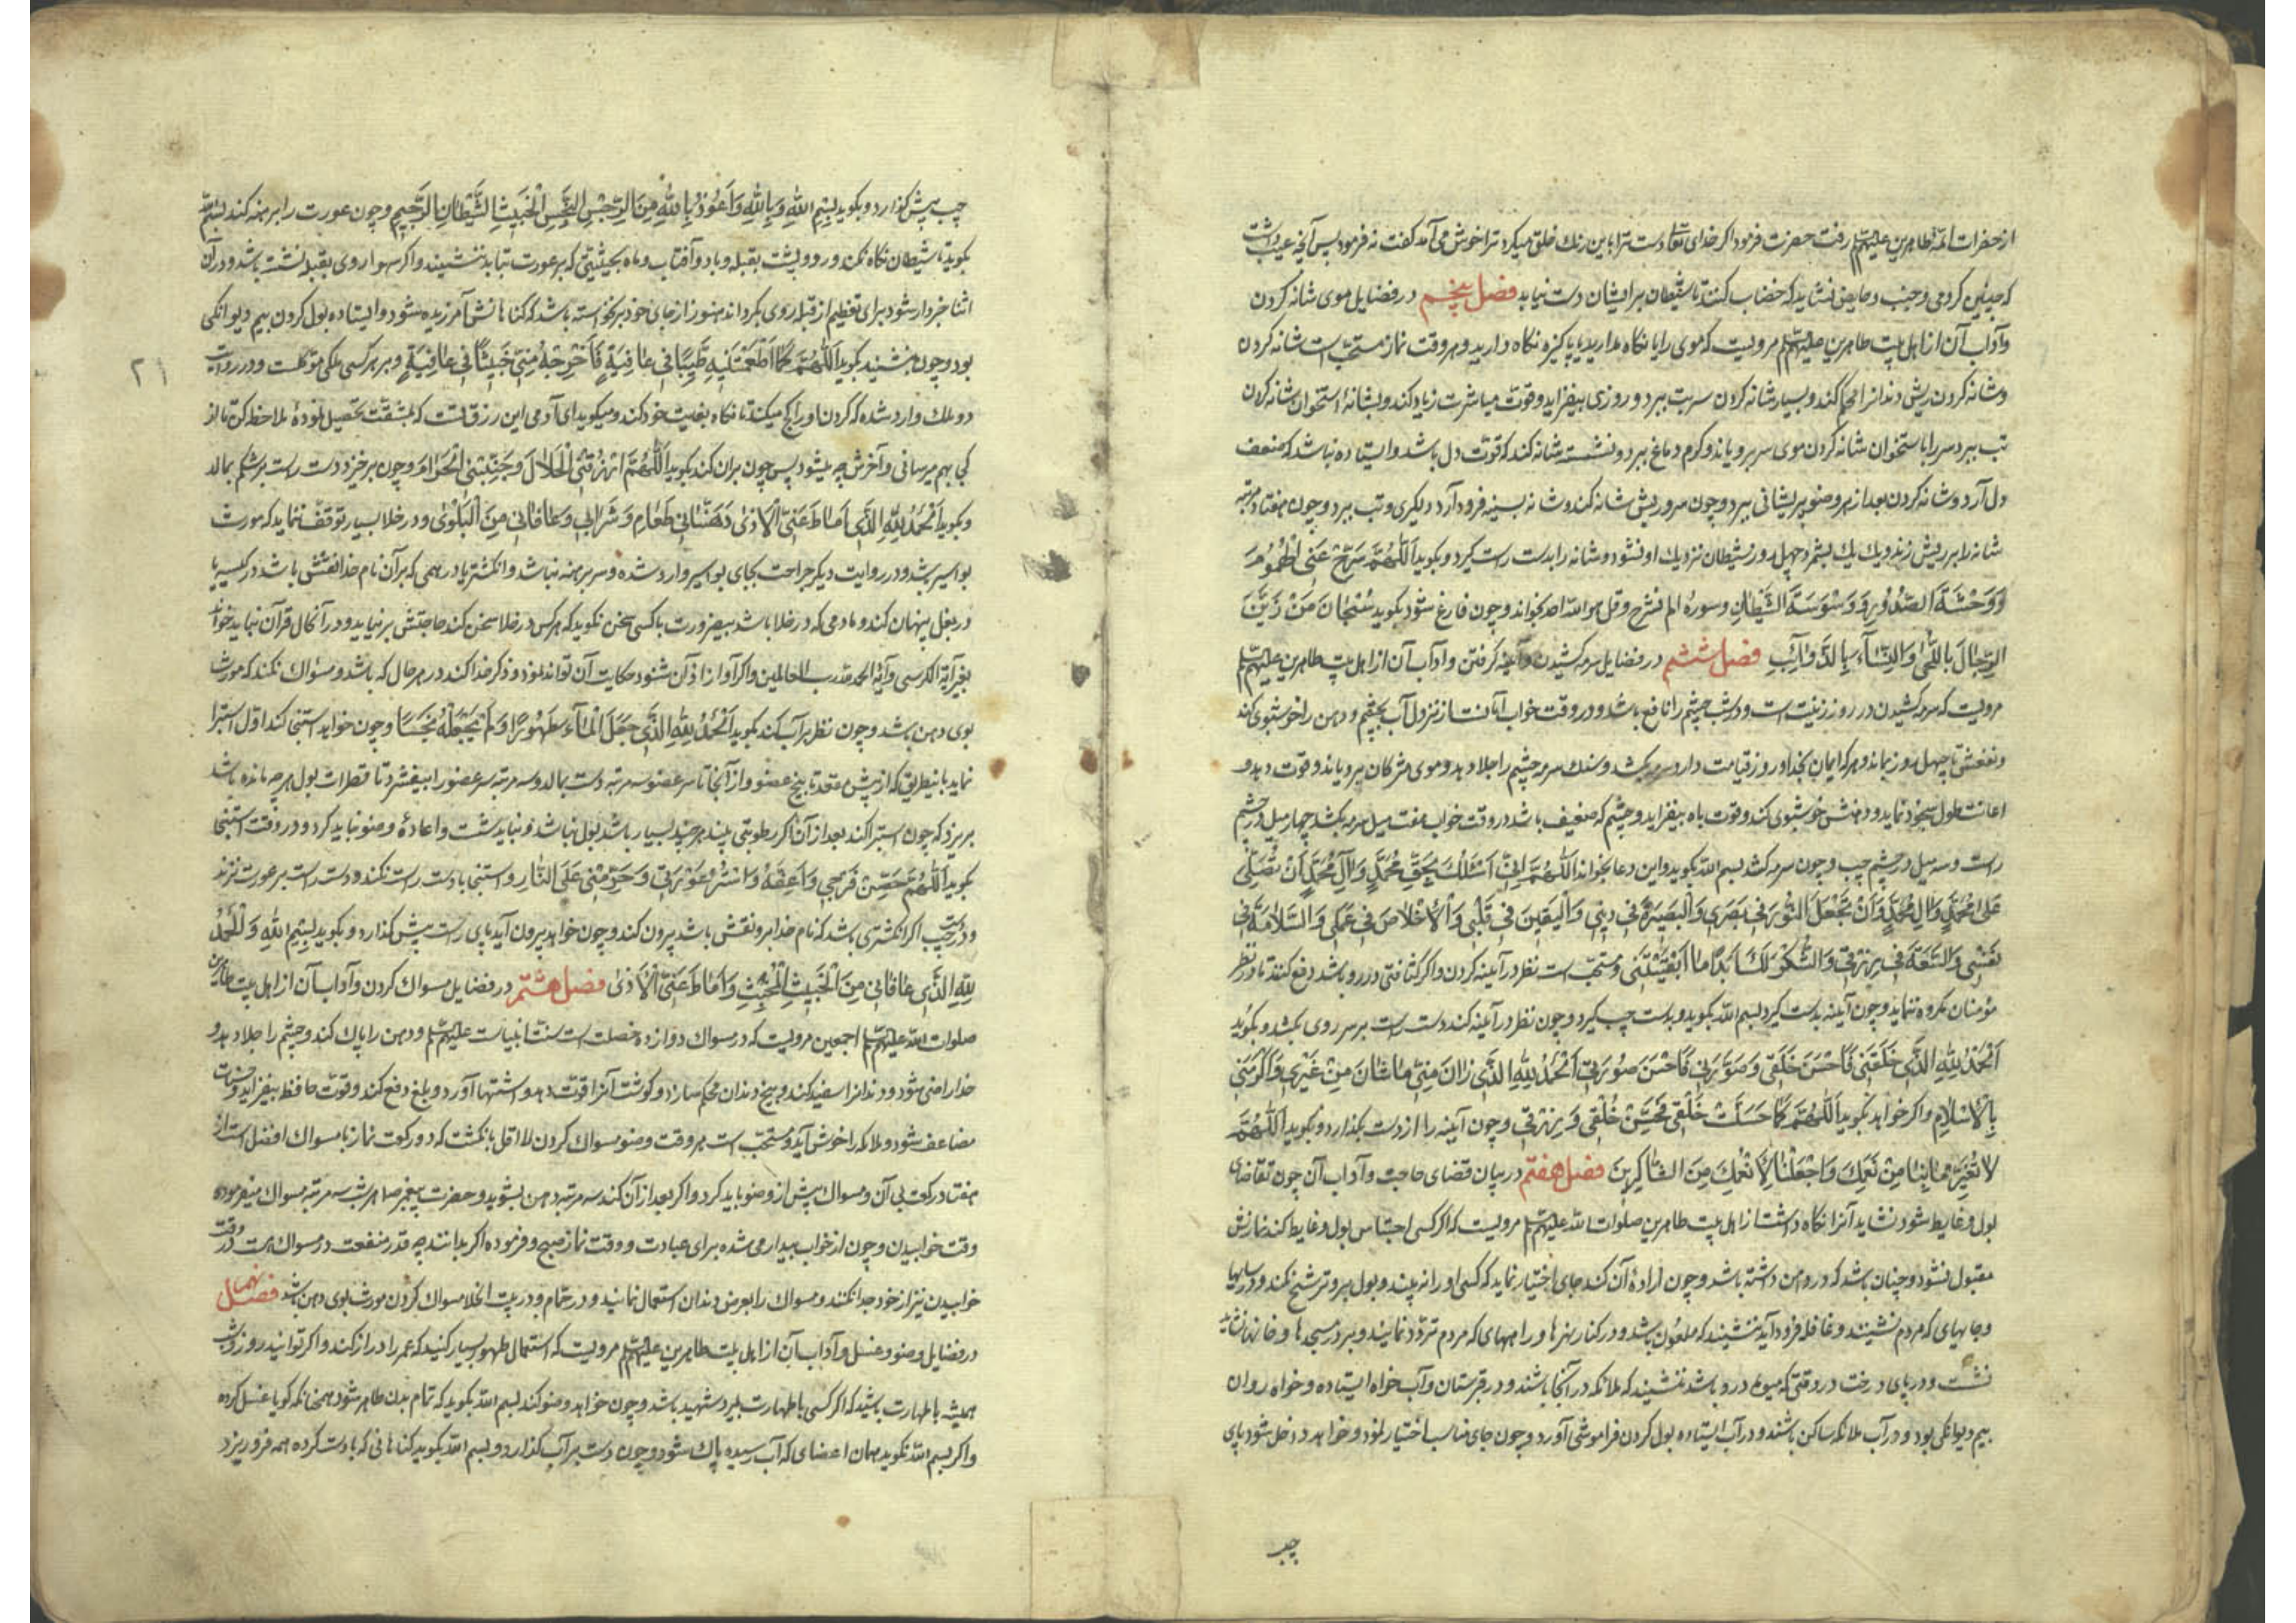 از حضرات ائمه طاهرین علیهم رفت حضرت فرمود اگر خدای تعا دست ترا باین رنك خلق میکرد ترا خوش می آمد کفت نه فرمود پس آنچه عیب داشت
که چنین کردمی و جنب و حایض نشاید که خضاب کنند تا شیطان بر ایشان دست نیابد فصل پنجم در فضایل موی شانه کردن
و آداب آن از اهل بیت طاهرین علیهم مرویست که موی را یا نکاه مدارید یا پاکیزه نکاه دارید و هر وقت نماز مستحب است شانه کردن
و شانه کردن ریش دندانرا محکم کند و بسیار شانه کردن تب ببرد و روزی بیفزاید و قوت مباشرت زیاد کند و بشانهٔ استخوان شانه کردن
تب ببرد سر را باستخوان شانه کردن موی سر برویاند و کرم دماغ ببرد و نشسته شانه کند که قوت دل باشد و ایستاده نباشد که ضعف
دل آرد و شانه کردن بعد از هر وضو پریشانی ببرد و چون سر و ریش شانه کند و شانه بسینه فرود آرد دیکری و تب ببرد و چون هفتاد مرتبه
شانه را بر ریش زند و یك یك بشمرد چهل روز شیطان نزدیك او نشود و شانه را بدست راست کیرد و بکوید اَللّٰهُمَّ سَرِّحْ عَنِّی الْهُمُومَ
وَوَحْشَةَ الصُّدُورِ وَوَسْوَسَةَ الشَّیْطَانِ و سورهٔ الم نشرح و قل هو الله احد بخواند و چون فارغ شود بکوید سُبْحَانَ مَنْ زَیَّنَ
الرِّجَالَ بِاللِّحٰی وَالنِّسَآءَ بِالذَّوَآئِبِ فصل ششم در فضایل سرمه کشیدن و آینه کرفتن و آداب آن از اهل بیت طاهرین علیهم
مرویست که سرمه کشیدن در روز زینت است و در شب چشم را نافع باشد و در وقت خواب امانست از نزول آب بچشم و دهن را خوشبوی کند
و نفعش تا چهل روز بماند و هر که ایمان بخدا و روز قیامت دارد سرمه بکشد و سنك سرمه چشم را جلا دهد و موی مژکان برویاند و قوت دهد و
اعانت طول سجود نماید و دهنش خوشبوی کند و قوت باه بیفزاید و چشم که ضعیف باشد در وقت خواب هفت میل سرمه بکشد چهار میل در چشم
راست و سه میل در چشم چب و چون سرمه کشد بسم الله بکوید و این دعا بخواند اَللّٰهُمَّ اِنِّی اَسْئَلُكَ بِحَقِّ مُحَمَّدٍ وَآلِ مُحَمَّدٍ اَنْ تُصَلِّیَ
عَلٰی مُحَمَّدٍ وَآلِ مُحَمَّدٍ وَاَنْ تَجْعَلَ النُّورَ فِی بَصَرِی وَالْبَصِیرَةَ فِی دِینِی وَالْیَقِینَ فِی قَلْبِی وَالْاِخْلَاصَ فِی عَمَلِی وَالسَّلَامَةَ فِی
نَفْسِی وَالسَّعَةَ فِی رِزْقِی وَالشُّكْرَ لَكَ اَبَدًا مَا اَبْقَیْتَنِی و مستحب است نظر در آینه کردن و اکر کثافتی در رو باشد دفع کنند تا در نظر
مؤمنان مکروه ننماید و چون آینه بدست کیرد بسم الله بکوید و بدست چب کیرد و چون نظر در آینه کند دست راست بر سر روی بکشد و بکوید
اَلْحَمْدُ لِلّٰهِ الَّذِی خَلَقَنِی فَاَحْسَنَ خَلْقِی وَصَوَّرَنِی فَاَحْسَنَ صُورَتِی اَلْحَمْدُ لِلّٰهِ الَّذِی زَانَ مِنِّی مَا شَانَ مِنْ غَیْرِی وَاَكْرَمَنِی
بِالْاِسْلَامِ و اکر خواهد بکوید اَللّٰهُمَّ كَمَا حَسَّنْتَ خَلْقِی فَحَسِّنْ خُلْقِی وَرِزْقِی و چون آینه را از دست بکذارد بکوید اَللّٰهُمَّ
لَا تُغَیِّرْ مَا بِنَا مِنْ نِعَمِكَ وَاجْعَلْنَا لِاَنْعُمِكَ مِنَ الشَّاكِرِینَ فصل هفتم در بیان قضای حاجت و آداب آن چون تقاضای
بول و غایط شود نشاید آنرا نکاه داشت از اهل بیت طاهرین صلوات الله علیهم مرویست که اکر کسی احتباس بول و غایط کند نمازش
مقبول نشود و چنان باشد که در دامن داشته باشد و چون ارادهٔ آن کند جای اختیار نماید که کسی او را نه بیند و بول برو ترشح نکند و در سایها
و جاهیای که مردم نشینند و قافله فرود آید ننشیند که ملعون باشد و در کنار نهرها و راههای که مردم تردد نمایند و بر در مسجدها و خانه نشاید
نشست و در پای درخت در وقتی که میوه درو باشد ننشیند که ملائکه در آنجا باشند و در قبرستان و آب خواه ایستاده و خواه روان
بیم دیوانکی بود و در آب ملائکه ساکن باشند و در آب ایستاده بول کردن فراموشی آورد و چون جای مناسب اختیار نمود و خواهد داخل شود پای
چب
چب پیش کذارد و بکوید بِسْمِ اللهِ وَبِاللهِ وَاَعُوذُ بِاللهِ مِنَ الرِّجْسِ النَّجِسِ الْخَبِیثِ الشَّیْطَانِ الرَّجِیمِ و چون عورت را برهنه کند بسم الله
بکوید تا شیطان نکاه نکند و رو و پشت بقبله و باد و آفتاب و ماه بحیثیتی که بر عورت بتابد ننشیند و اکر سهوا روی بقبله نشسته باشد و در آن
اثنا خبردار شود برای تعظیم از قبله روی بکرداند هنوز از جای خود برنخواسته باشد که کناهانش آمرزیده شود و ایستاده بول کردن بیم دیوانکی
بود و چون بنشیند بکوید اَللّٰهُمَّ كَمَا اَطْعَمْتَنِیهِ طَیِّبًا فِی عَافِیَةٍ فَاَخْرِجْهُ مِنِّی خَبِیثًا فِی عَافِیَةٍ و بر هر کسی ملکی موکلست و در روایت
۲۱
دو ملك وارد شده که کردن او را کج میکند تا نکاه بغایت خود کند و میکوید ای آدمی این رزق تست که بمشقت تحصیل نمودهٔ ملاحظه کن تا از
کجا بهم میرسانی و آخرش چه میشود پس چون بران کند بکوید اَللّٰهُمَّ ارْزُقْنِی الْحَلَالَ وَجَنِّبْنِی الْحَرَامَ و چون برخیزد دست راست بر شکم بمالد
و بکوید اَلْحَمْدُ لِلّٰهِ الَّذِی اَمَاطَ عَنِّی الْاَذٰی وَهَنَّأَنِی طَعَامِی وَشَرَابِی وَعَافَانِی مِنَ الْبَلْوٰی و در خلا بسیار توقف ننماید که مورث
بواسیر باشد و در روایت دیکر جراحت بجای بواسیر وارد شده و سر برهنه نباشد و انکشتر یا درهمی که بر آن نام خدا نقش باشد در کیسه یا
در بغل پنهان کند و مادمی که در خلا باشد بیضرورت با کسی سخن نکوید که هر کس در خلا سخن کند حاجتش برنیاید و در آنحال قرآن نباید خواند
بغیر آیة الکرسی و آیهٔ الحمد لله رب العالمین و اکر آواز اذان شنود حکایت آن تواند نمود و ذکر خدا کند در هر حال که باشد و مسواك نکند که مورث
بوی دهن باشد و چون نظر بر آب کند بکوید اَلْحَمْدُ لِلّٰهِ الَّذِی جَعَلَ الْمَآءَ طَهُورًا وَلَمْ یَجْعَلْهُ نَجَسًا و چون خواهد استنجا کند اول استبرا
نماید باینطریق که از پیش مقعد تا بیخ عضو و از آنجا تا سر عضو سه مرتبه دست بمالد و سه مرتبه سر عضو را بیفشرد تا قطرات بول هر چه مانده باشد
بریزد که چون استبرا کند بعد از آن اکر رطوبتی بیند هر چند بسیار باشد بول نباشد و نباید شست و اعادهٔ وضو نباید کرد و در وقت استنجا
بکوید اَللّٰهُمَّ حَصِّنْ فَرْجِی وَاَعِفَّهُ وَاسْتُرْ عَوْرَتِی وَحَرِّمْنِی عَلَی النَّارِ و استنجا بدست راست نکند و دست راست بر عورت نزند
و در دست چب اکر انکشتری باشد که نام خدا برو نقش باشد بیرون کند و چون خواهد بیرون آید پای راست پیش کذارد و بکوید بِسْمِ اللهِ وَالْحَمْدُ
لِلّٰهِ الَّذِی عَافَانِی مِنَ الْخَبِیثِ الْمُخْبِثِ وَاَمَاطَ عَنِّی الْاَذٰی فصل هشتم در فضایل مسواك کردن و آداب آن از اهل بیت طاهرین
صلوات الله علیهم اجمعین مرویست که در مسواك دوازده خصلت است سنت انبیاست علیهم و دهن را پاك کند و چشم را جلا دهد و
خدا راضی شود و دندانرا سفید کند و بیخ دندان محکم سازد و کوشت آنرا قوت دهد و اشتها آورد و بلغم دفع کند و قوت حافظه بیفزاید و حسنات
مضاعف شود و ملائکه را خوش آید و مستحب است بهر وقت وضو مسواك کردن لا اقل بانکشت که دو رکعت نماز با مسواك افضل است از
هفتاد رکعت بی آن و مسواك پیش از وضو باید کرد و اکر بعد از آن کند سه مرتبه دهن بشوید و حضرت پیغمبر ص هر شب سه مرتبه مسواك میفرموده
وقت خوابیدن و چون از خواب بیدار می شده برای عبادت و وقت نماز صبح و فرموده اکر بدانند چه قدر منفعت در مسواك هست در وقت
خوابیدن نیز از خود جدا نکنند و مسواك را بعرض دندان استعمال نمایند و در حمام و در بیت الخلا مسواك کردن مورث بوی دهن باشد فصل نهم
در فضایل وضو و غسل و آداب آن از اهل بیت طاهرین علیهم مرویست که استعمال طهور بسیار کنید که عمر را دراز کند و اکر توانید روز و شب
همیشه با طهارت باشید که اکر کسی با طهارت بمیرد شهید باشد و چون خواهد وضو کند بسم الله بکوید که تمام بدن طاهر شود همچنانکه کویا غسل کرده
و اکر بسم الله نکوید همان اعضای که آب رسیده پاك شود و چون دست بر آب کذارد و بسم الله بکوید کناهانی که بادست کرده همه فرو ریزد